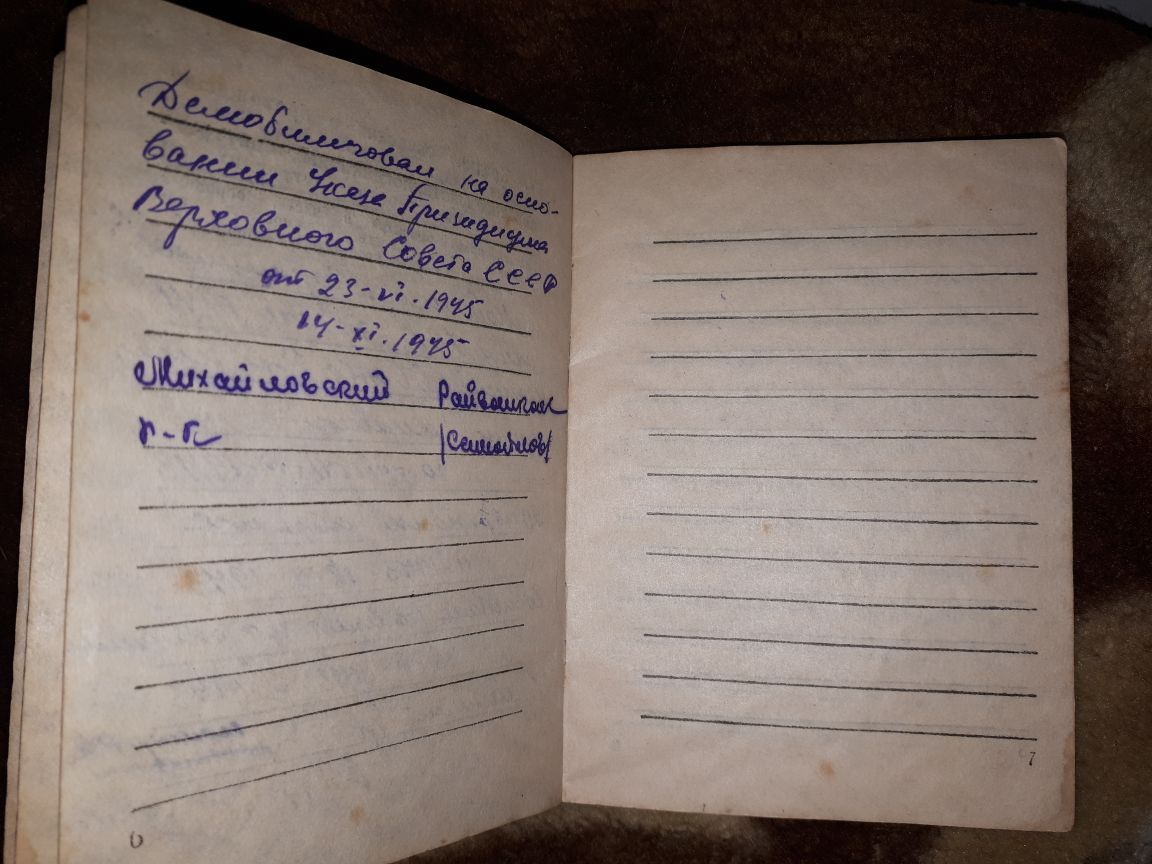 Демобилизован на осно-
вании Указа Призидиума
Верховного Совета СССР
от 23-VI.1945
14-XI.1945
Михайловский Райвоенком
п-п /Самойлов/
6
7